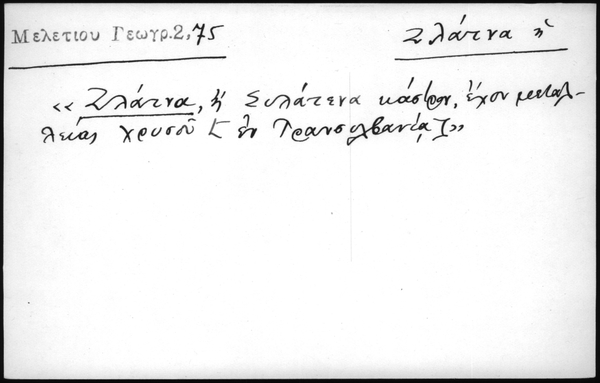 Μελετίου Γεωγρ.2,75
Σλάτνα ἡ
« Σλάτνα, ἢ Συλάτενα κάστρον, ἔχον μεταλ-
λείας χρυσοῦ [ ἐν Τρανσυλβανίᾳ ]»